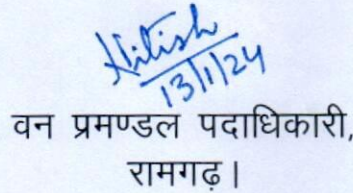 Nitish
13/1/24
वन प्रमण्डल पदाधिकारी,
रामगढ़।